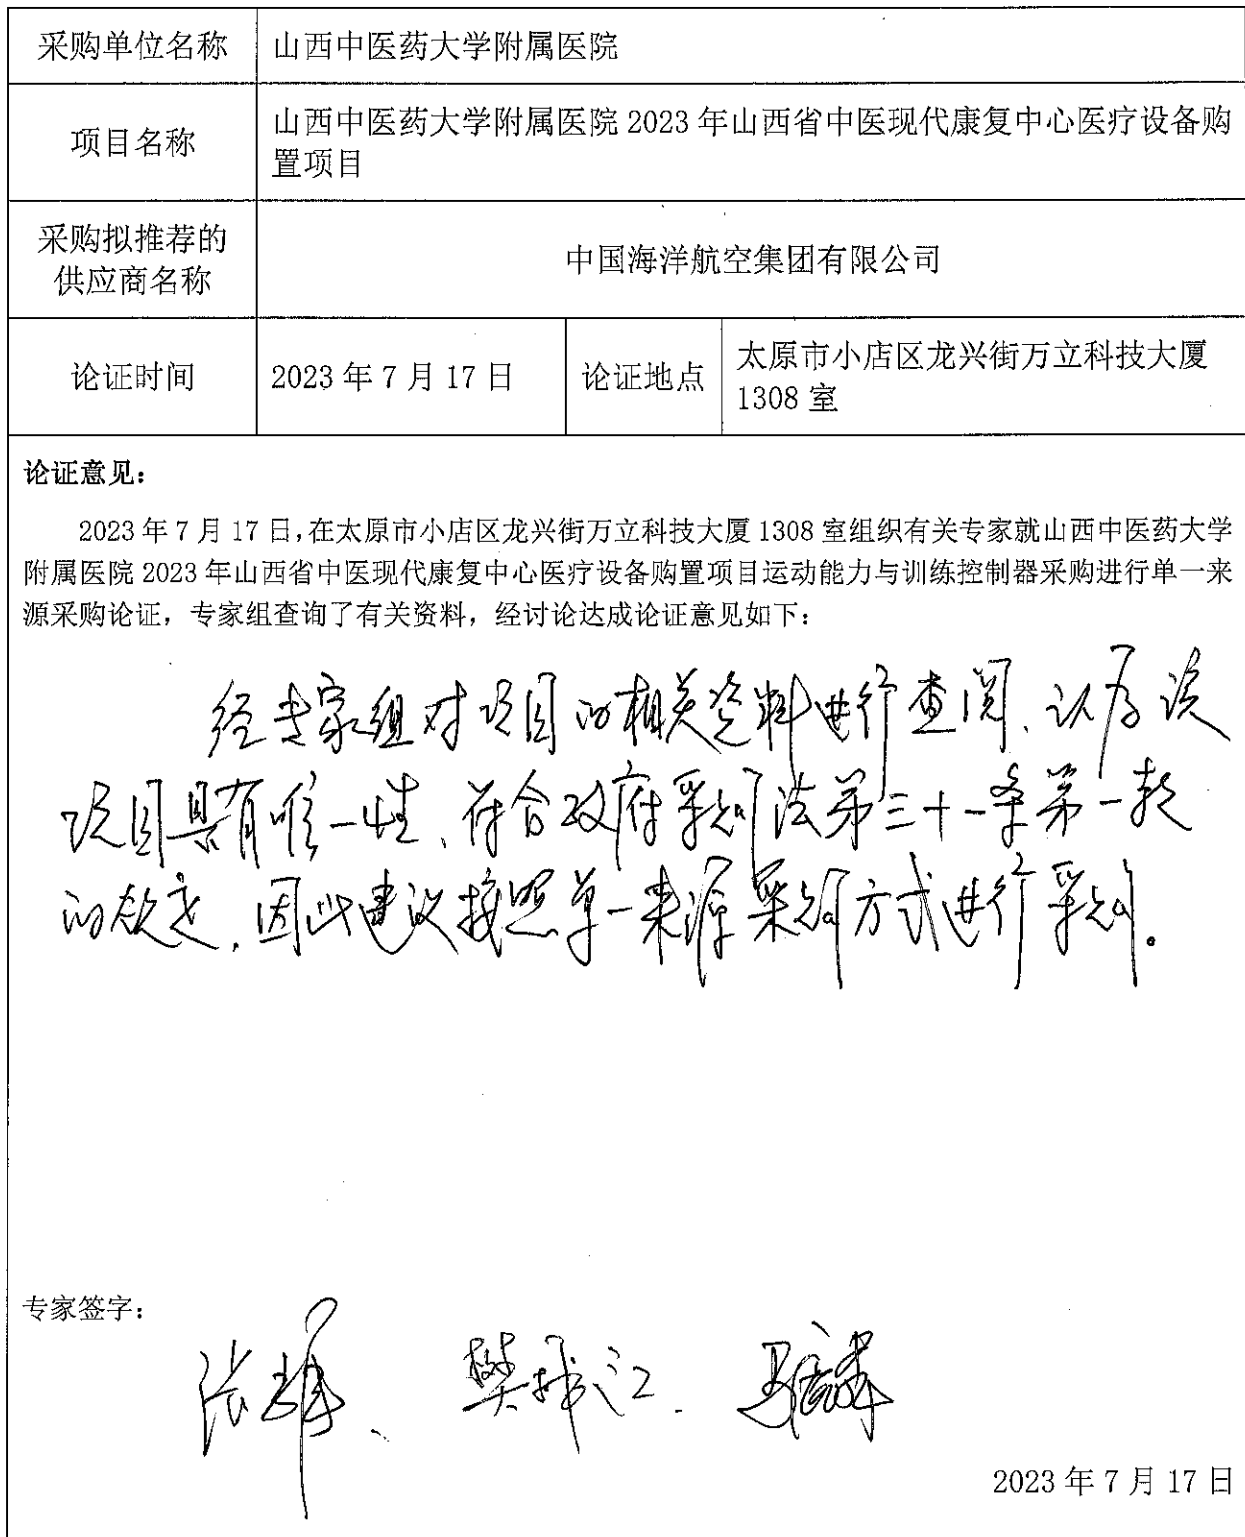 采购单位名称 山西中医药大学附属医院
项目名称 山西中医药大学附属医院 2023 年山西省中医现代康复中心医疗设备购
置项目
采购拟推荐的
供应商名称
中国海洋航空集团有限公司
论证时间 2023 年 7 月 17 日 论证地点
太原市小店区龙兴街万立科技大厦
1308 室
论证意见：
2023 年 7 月 17 日，在太原市小店区龙兴街万立科技大厦 1308 室组织有关专家就山西中医药大学
附属医院 2023 年山西省中医现代康复中心医疗设备购置项目运动能力与训练控制器采购进行单一来
源采购论证，专家组查询了有关资料，经讨论达成论证意见如下：
经专家组对项目的相关资料进行查阅、认为该
项目具有唯一性、符合政府采购法第三十一条第一款
的规定，因此建议按照单一来源采购方式进行采购。
专家签字：
2023 年 7 月 17 日